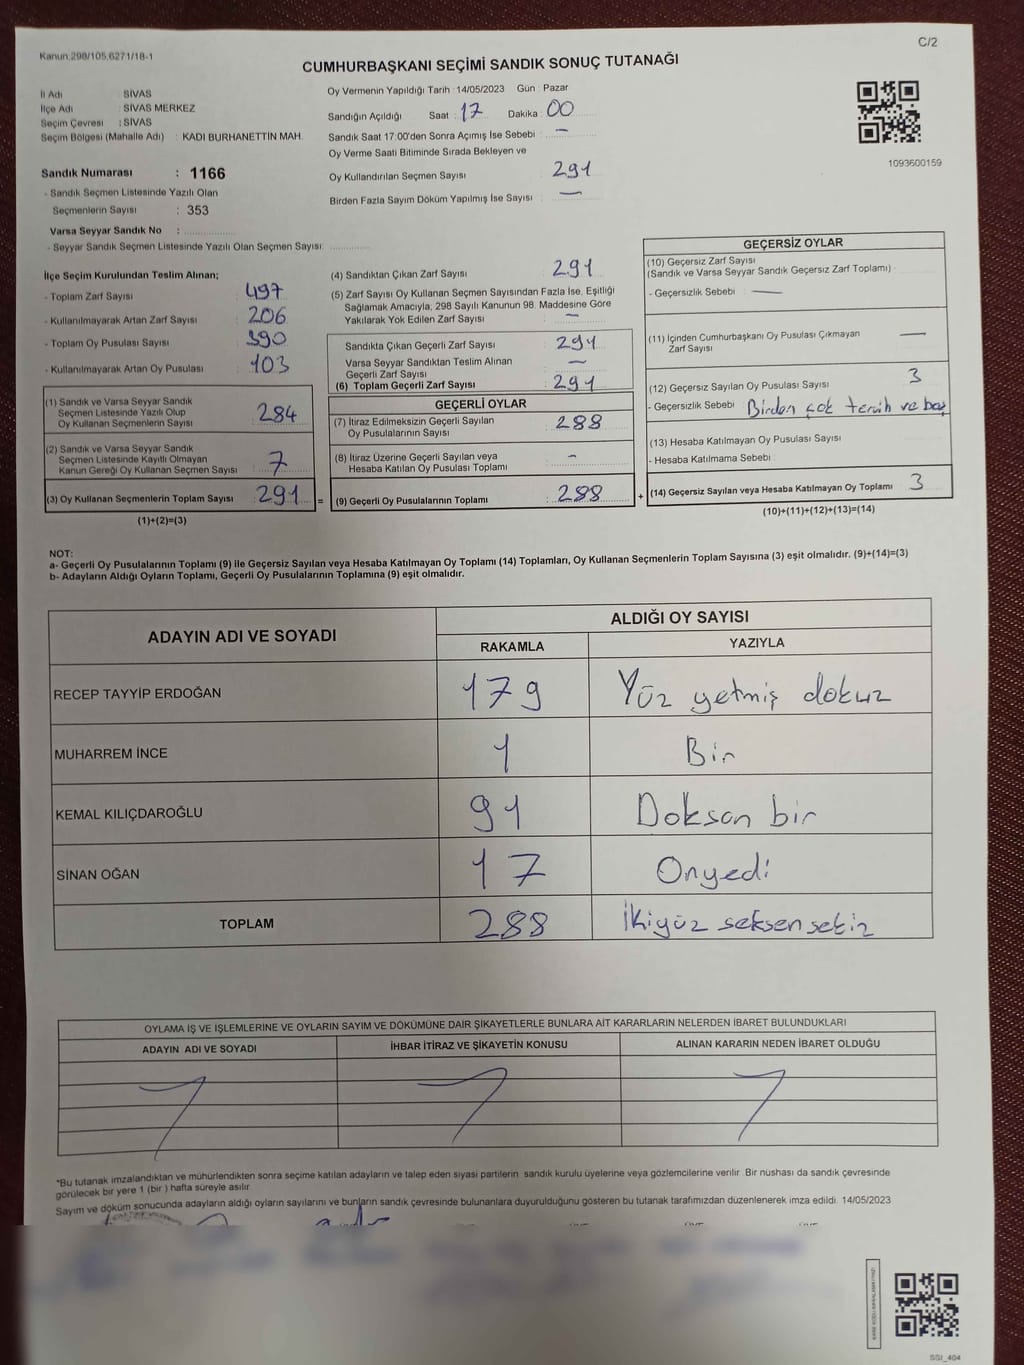 Kanun,298/105,6271/18-1
C/2
CUMHURBAŞKANI SEÇİMİ SANDIK SONUÇ TUTANAĞI
İl Adı : SİVAS
İlçe Adı : SİVAS MERKEZ
Seçim Çevresi : SİVAS
Seçim Bölgesi (Mahalle Adı) : KADI BURHANETTİN MAH.
Sandık Numarası : 1166
- Sandık Seçmen Listesinde Yazılı Olan
Seçmenlerin Sayısı : 353
Varsa Seyyar Sandık No :
- Seyyar Sandık Seçmen Listesinde Yazılı Olan Seçmen Sayısı:
Oy Vermenin Yapıldığı Tarih : 14/05/2023 Gün : Pazar
Sandığın Açıldığı Saat : 17 Dakika : 00
Sandık Saat 17:00'den Sonra Açımış İse Sebebi : —
Oy Verme Saati Bitiminde Sırada Bekleyen ve
Oy Kullandırılan Seçmen Sayısı : 291
Birden Fazla Sayım Döküm Yapılmış İse Sayısı : —
1093600159
İlçe Seçim Kurulundan Teslim Alınan;
- Toplam Zarf Sayısı : 497
- Kullanılmayarak Artan Zarf Sayısı : 206
- Toplam Oy Pusulası Sayısı : 390
- Kullanılmayarak Artan Oy Pusulası : 103
(1) Sandık ve Varsa Seyyar Sandık
Seçmen Listesinde Yazılı Olup
Oy Kullanan Seçmenlerin Sayısı : 284
(2) Sandık ve Varsa Seyyar Sandık
Seçmen Listesinde Kayıtlı Olmayan
Kanun Gereği Oy Kullanan Seçmen Sayısı : 7
(3) Oy Kullanan Seçmenlerin Toplam Sayısı : 291 =
(1)+(2)=(3)
(4) Sandıktan Çıkan Zarf Sayısı : 291
(5) Zarf Sayısı Oy Kullanan Seçmen Sayısından Fazla İse, Eşitliği
Sağlamak Amacıyla; 298 Sayılı Kanunun 98. Maddesine Göre
Yakılarak Yok Edilen Zarf Sayısı : —
Sandıkta Çıkan Geçerli Zarf Sayısı : 291
Varsa Seyyar Sandıktan Teslim Alınan
Geçerli Zarf Sayısı : —
(6) Toplam Geçerli Zarf Sayısı : 291
GEÇERLİ OYLAR
(7) İtiraz Edilmeksizin Geçerli Sayılan
Oy Pusulalarının Sayısı : 288
(8) İtiraz Üzerine Geçerli Sayılan veya
Hesaba Katılan Oy Pusulası Toplamı : -
(9) Geçerli Oy Pusulalarının Toplamı : 288 +
GEÇERSİZ OYLAR
(10) Geçersiz Zarf Sayısı
(Sandık ve Varsa Seyyar Sandık Geçersiz Zarf Toplamı) :
- Geçersizlik Sebebi : —
(11) İçinden Cumhurbaşkanı Oy Pusulası Çıkmayan —
Zarf Sayısı
(12) Geçersiz Sayılan Oy Pusulası Sayısı : 3
- Geçersizlik Sebebi : Birden çok tercih ve boş
(13) Hesaba Katılmayan Oy Pusulası Sayısı :
- Hesaba Katılmama Sebebi :
(14) Geçersiz Sayılan veya Hesaba Katılmayan Oy Toplamı : 3
(10)+(11)+(12)+(13)=(14)
NOT:
a- Geçerli Oy Pusulalarının Toplamı (9) ile Geçersiz Sayılan veya Hesaba Katılmayan Oy Toplamı (14) Toplamları, Oy Kullanan Seçmenlerin Toplam Sayısına (3) eşit olmalıdır. (9)+(14)=(3)
b- Adayların Aldığı Oyların Toplamı, Geçerli Oy Pusulalarının Toplamına (9) eşit olmalıdır.
ADAYIN ADI VE SOYADI
ALDIĞI OY SAYISI
RAKAMLA YAZIYLA
RECEP TAYYİP ERDOĞAN 179 Yüz yetmiş dokuz
MUHARREM İNCE 1 Bir
KEMAL KILIÇDAROĞLU 91 Doksan bir
SİNAN OĞAN 17 Onyedi
TOPLAM 288 İkiyüz seksensekiz
OYLAMA İŞ VE İŞLEMLERİNE VE OYLARIN SAYIM VE DÖKÜMÜNE DAİR ŞİKAYETLERLE BUNLARA AİT KARARLARIN NELERDEN İBARET BULUNDUKLARI
ADAYIN ADI VE SOYADI İHBAR İTİRAZ VE ŞİKAYETİN KONUSU ALINAN KARARIN NEDEN İBARET OLDUĞU
"Bu tutanak imzalandıktan ve mühürlendikten sonra seçime katılan adayların ve talep eden siyasi partilerin sandık kurulu üyelerine veya gözlemcilerine verilir. Bir nüshası da sandık çevresinde
görülecek bir yere 1 (bir) hafta süreyle asılır.
Sayım ve döküm sonucunda adayların aldığı oyların sayılarını ve bunların sandık çevresinde bulunanlara duyurulduğunu gösteren bu tutanak tarafımızdan düzenlenerek imza edildi. 14/05/2023
SGI_404